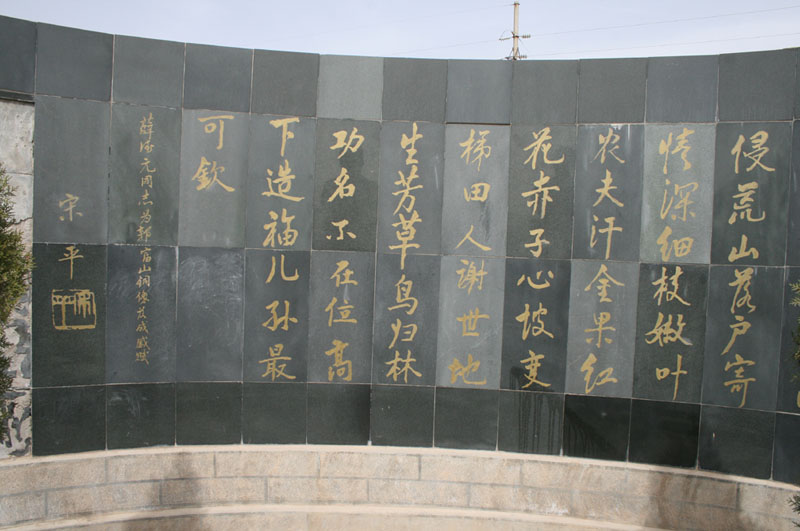 侵荒山落户寄
情深细枝嫩叶
农夫汗金果红
花赤子心坡变
梯田人谢世地
生芳草鸟归林
功名不在位高
下造福儿孙最
可钦
薛元同志为郝富山铜像落成感赋
宋平